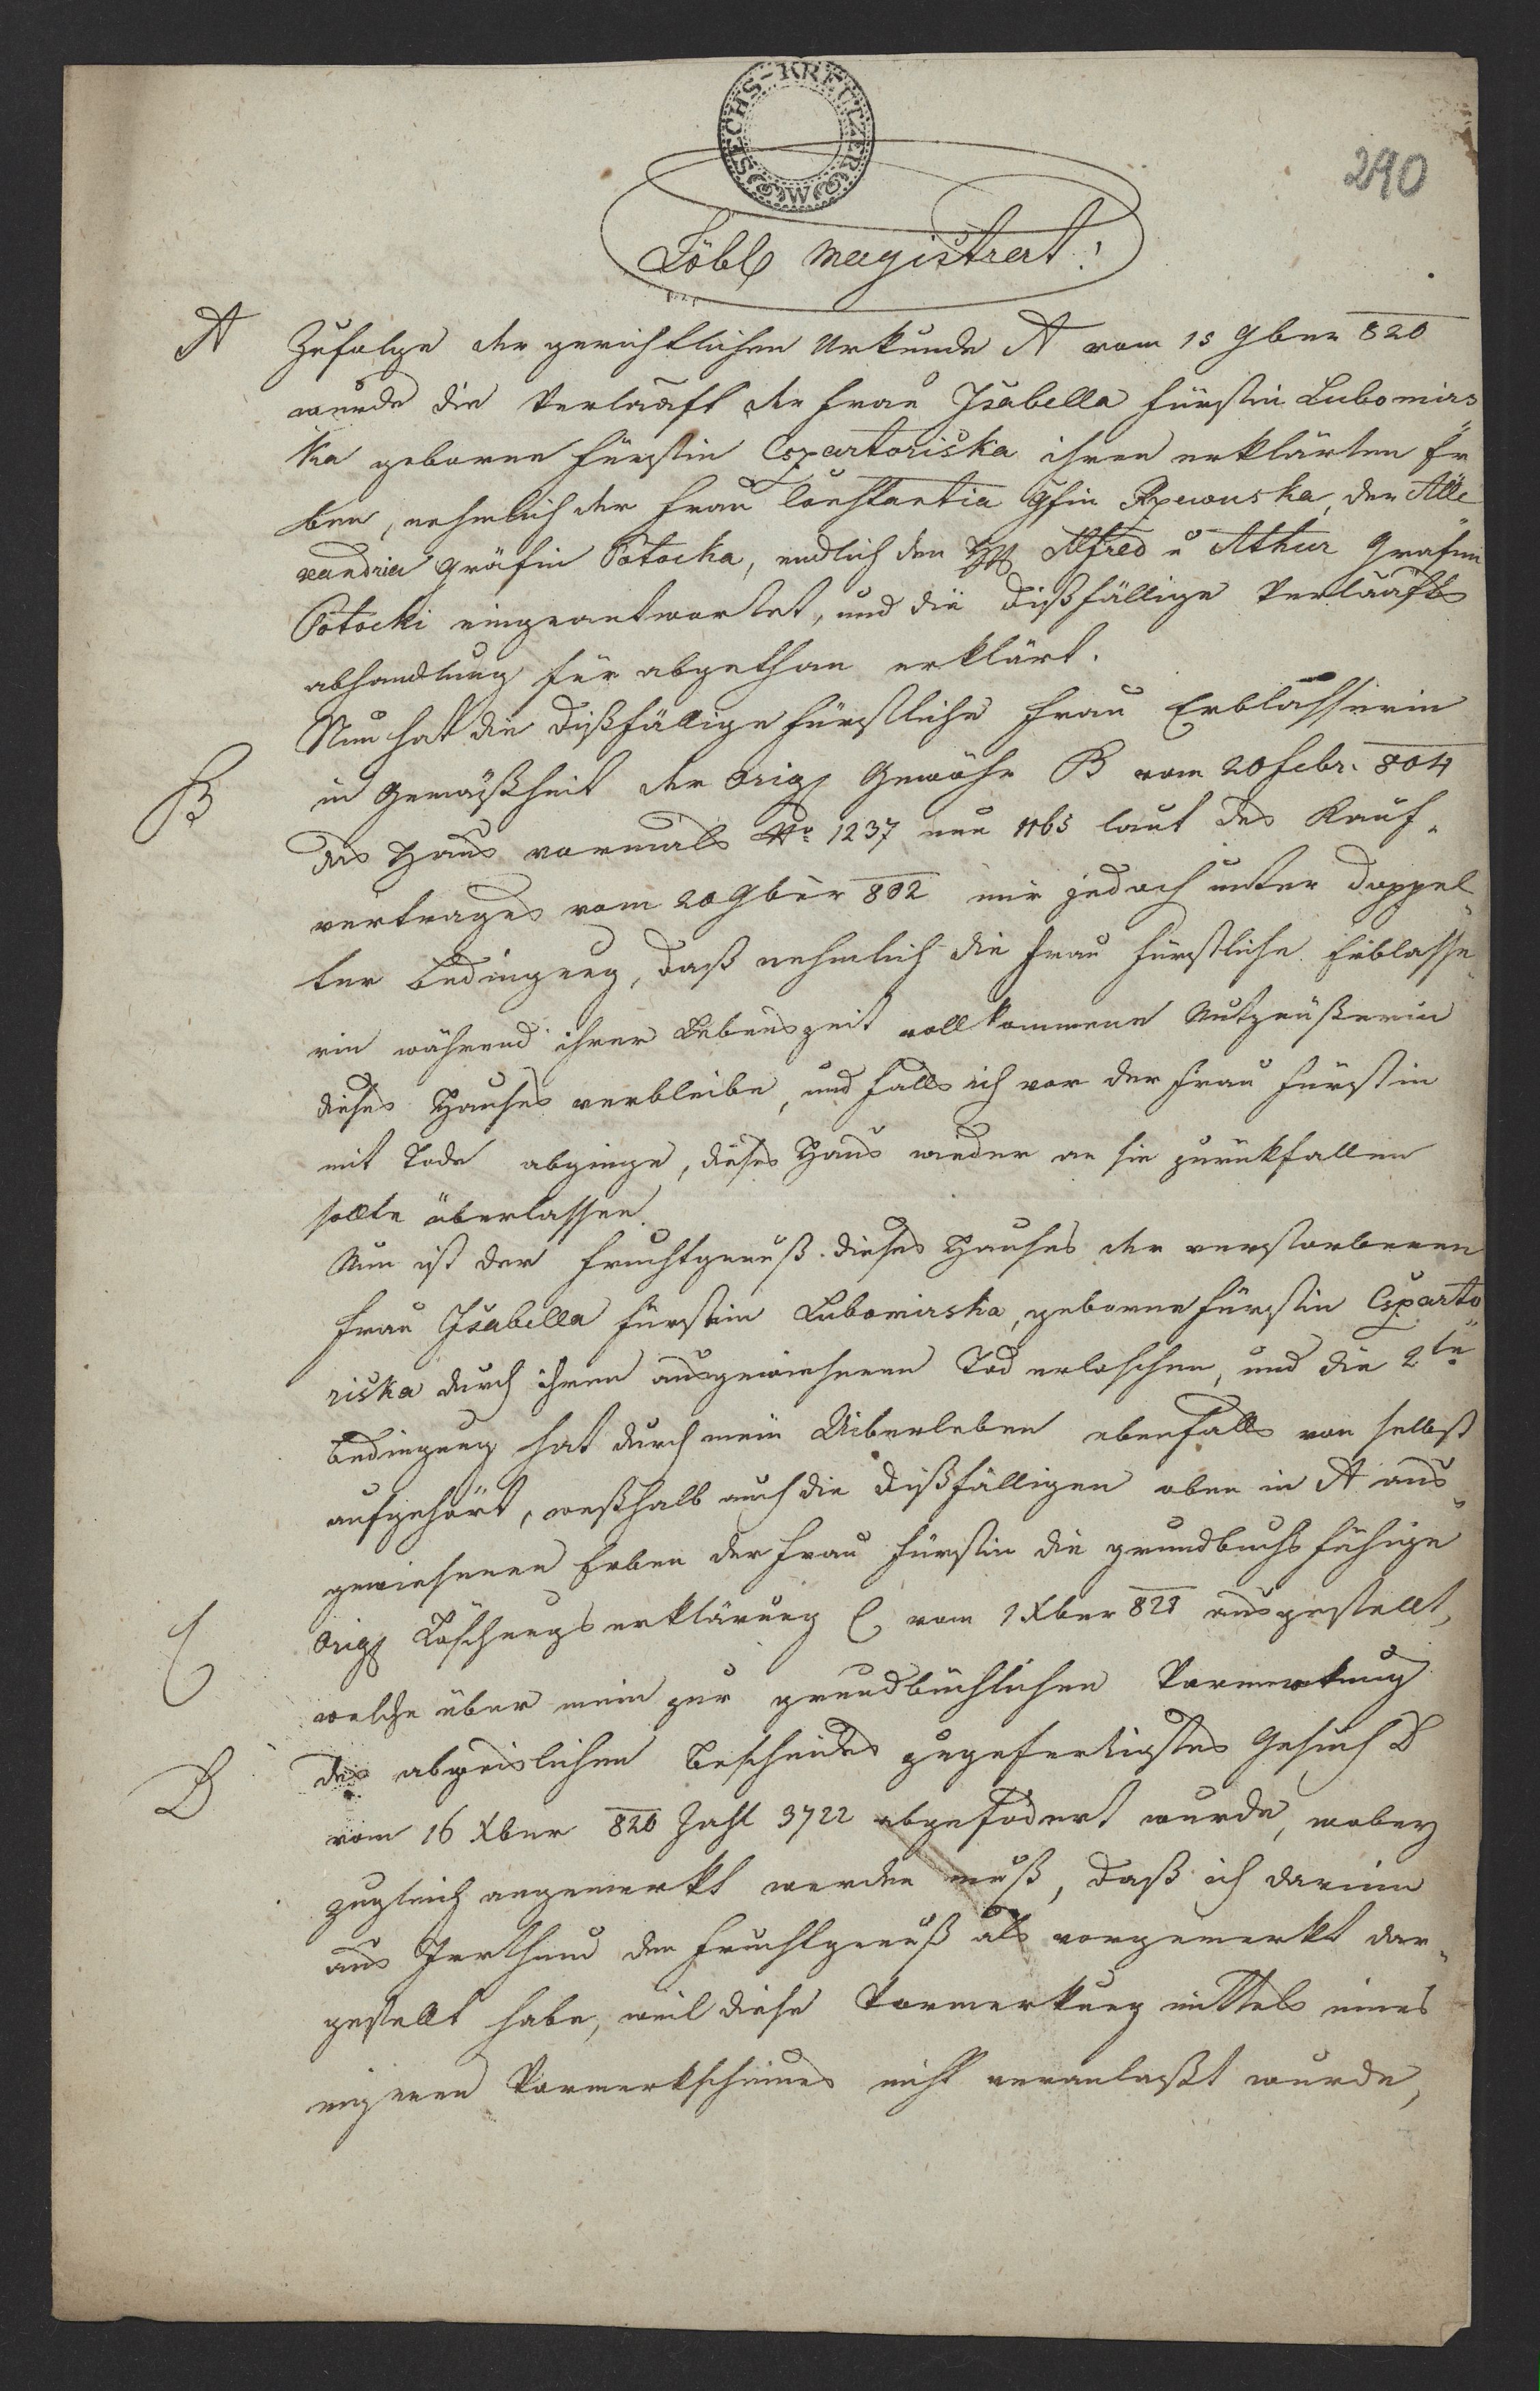 SECHS-KREUTZER
W M
290
Löbl Magistrat!
A Zufolge der gerichtlichen Urkunde A vom 15 9ber 820
wurde die Verlaaß der Frau Isabella Fürstin Lubomirs
ka geborne Fürstin Czartoriska ihren erklärten Er
ben, nehmlich der Frau Constantia Gfin Rzewuska, der Alle
xandria Gräfin Potocka, endlich den HH Alfred u Athur Grafen
Potocki eingeantwortet, und die dißfällige Verlaaßs
abhandlung für abgethan erklärt.
Nun hat die dißfällige fürstliche Frau Erblasserin
B in Gemäßheit der Orig Gewähr B vom 20 Febr. 804
das Haus vormals No 1237 nun 1165 laut des Kauf-
vertrages vom 20 9ber 802 mir jedoch unter doppel
ter Bedingung, daß nehmlich die Frau fürstliche Erblasse
rin während ihrer Lebenszeit vollkommene Nutznüßerin
dieses Hauses verbleibe, und falls ich vor der Frau Fürstin
mit Tode abginge, dieses Haus wieder an sie zurükfallen
sollte überlassen.
Nun ist der Fruchtgenuß dieses Hauses der verstorbenen
Frau Isabella Fürstin Lubomirska, geborne Fürstin Czarto
riska durch ihren ausgewiesenen Tod erloschen, und die 2te
Bedingung hat durch mein Uiberleben ebenfalls von selbst
aufgehört, weßhalb auch die dißfälligen oben in A aus
gewiesenen Erben der Frau Fürstin die grundbuchsfähige
C Orig Löschungserklärung C vom 1 Xber 820 ausgestellt,
welche über mein zur grundbüchlichen Vormerkung
D des abweislichen Bescheides zugefertigtes Gesuch D
vom 16 Xber 820 Zahl 3722 abgefodert wurde, wobey
zugleich angemerkt werden muß, daß ich darinn
aus Irrthum den Fruchtgenuß als vorgemerkt dar-
gestellt habe, weil diese Vormerkung mittels eines
eigenen Vormerkscheines nicht veranlaßt wurde,